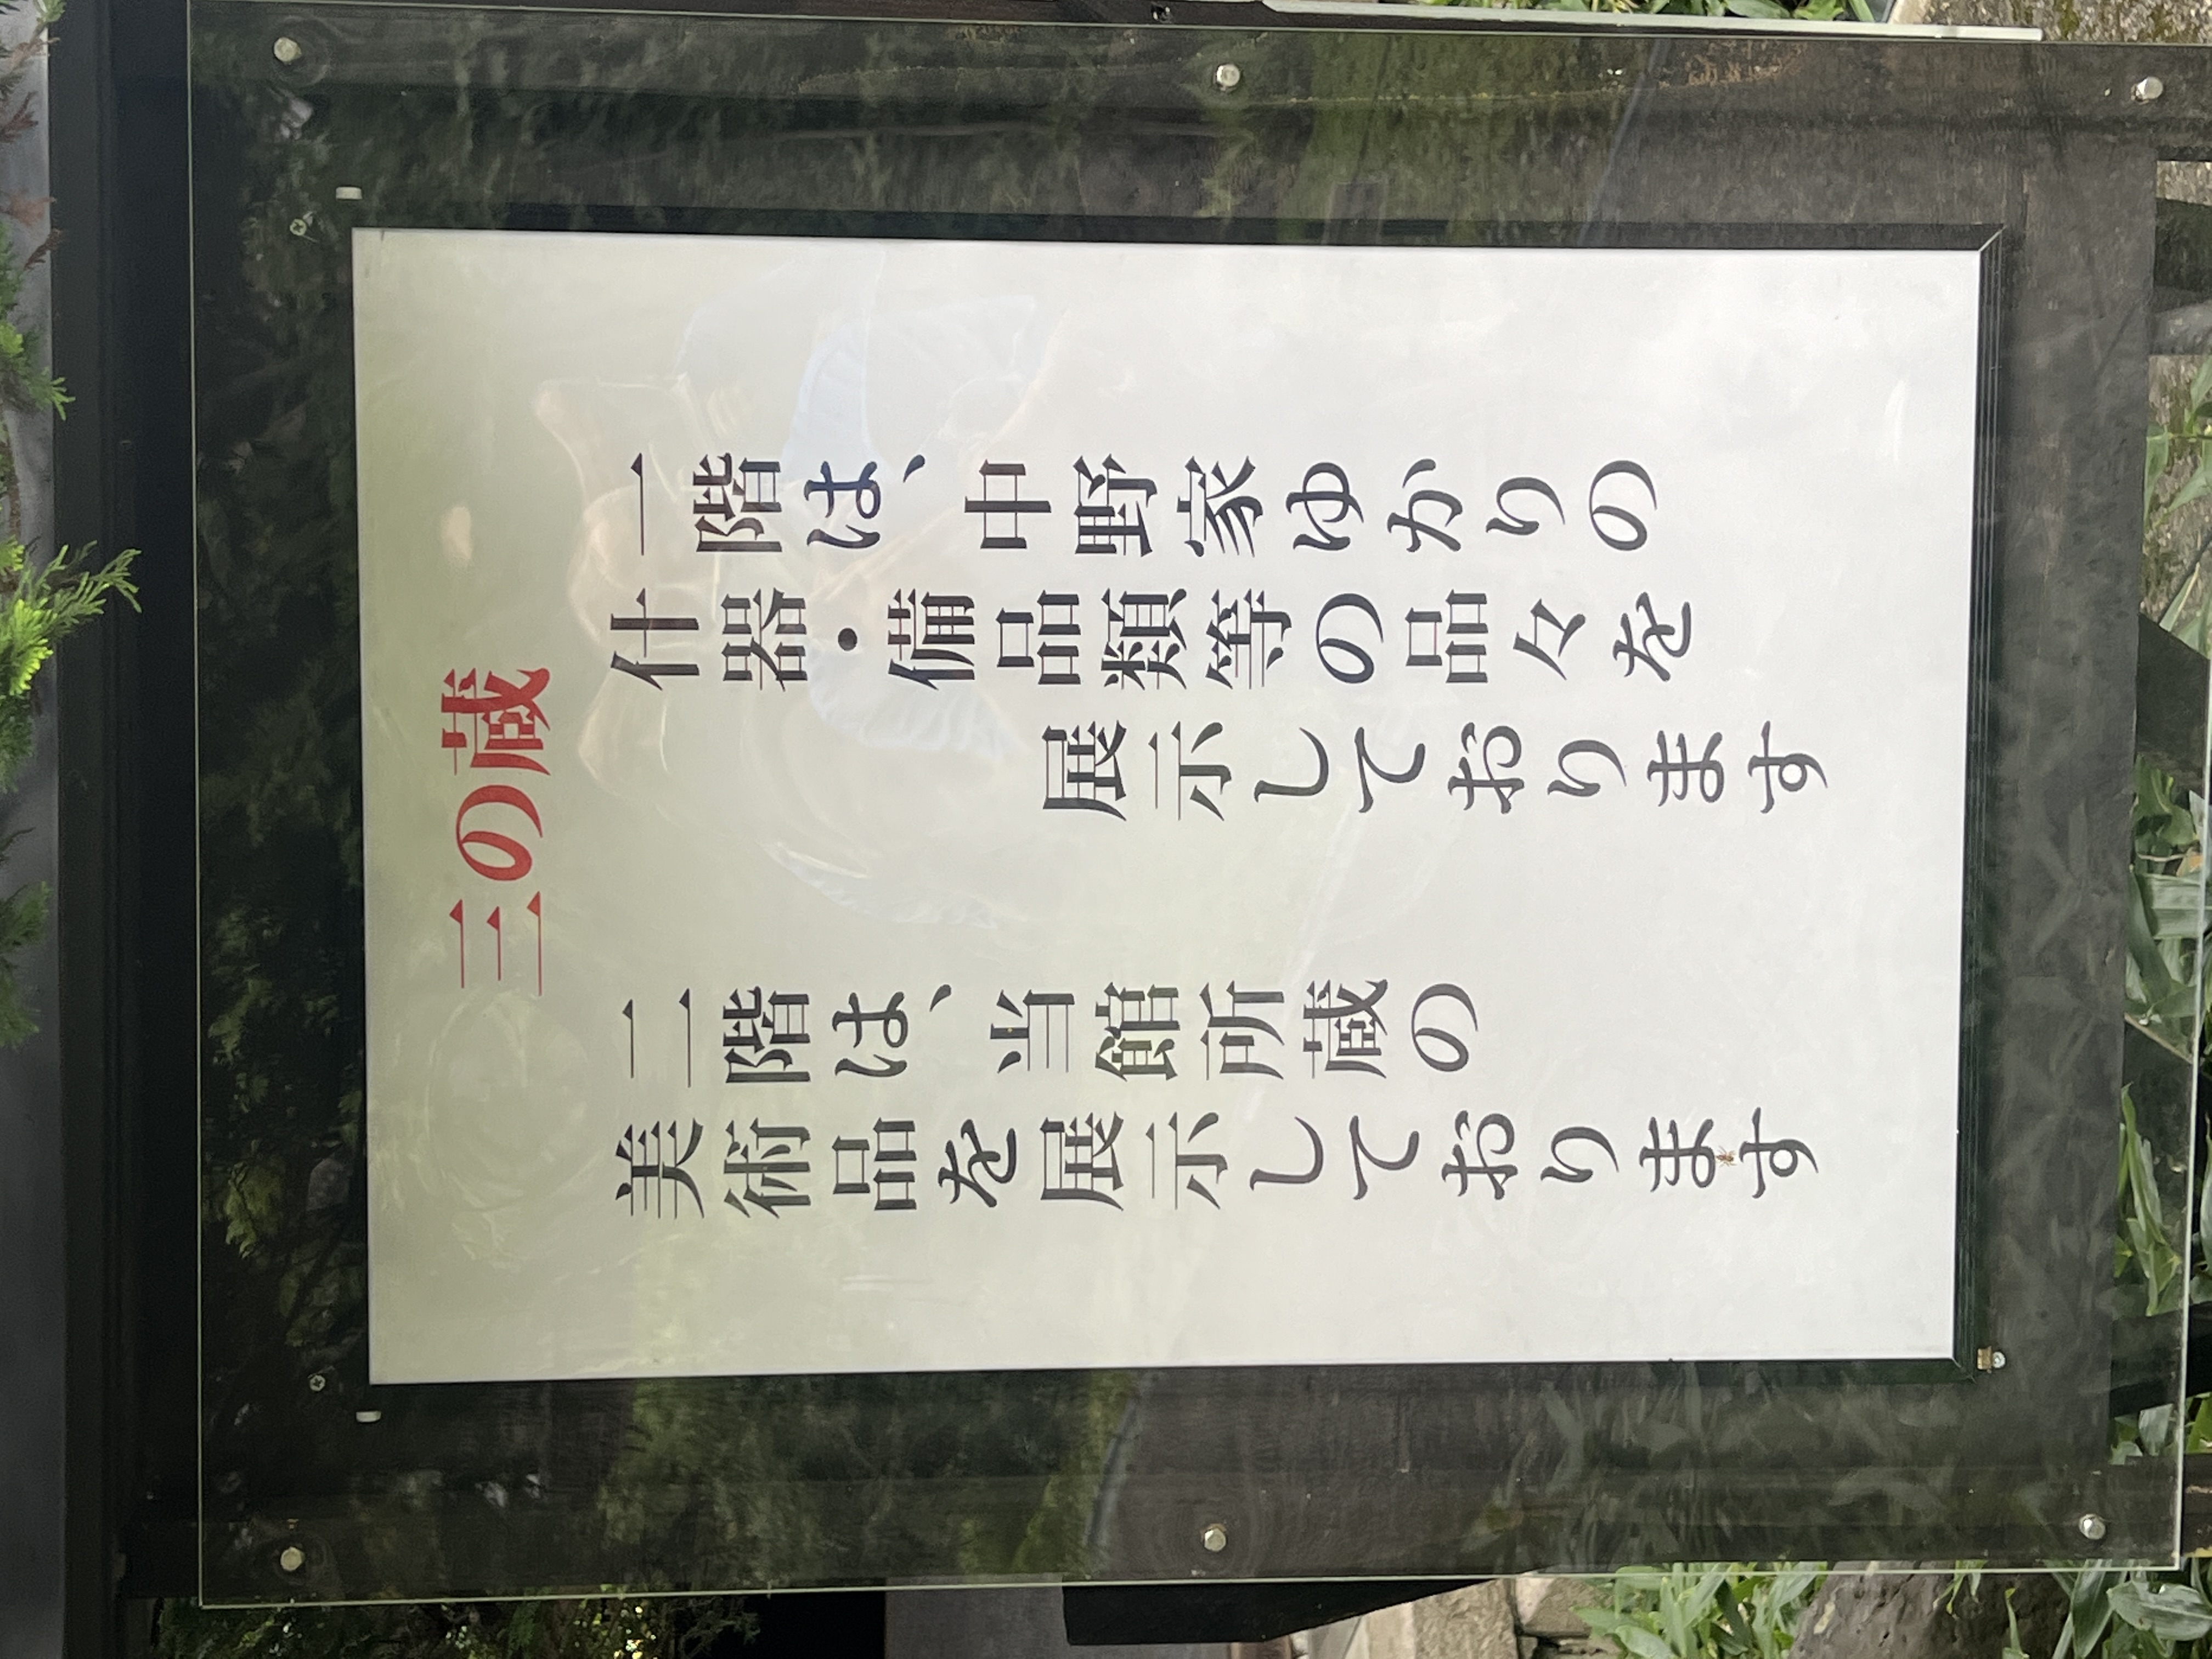 三の蔵
一階は、中野家ゆかりの
什器・備品類等の品々を
展示しております
二階は、当館所蔵の
美術品を展示しております